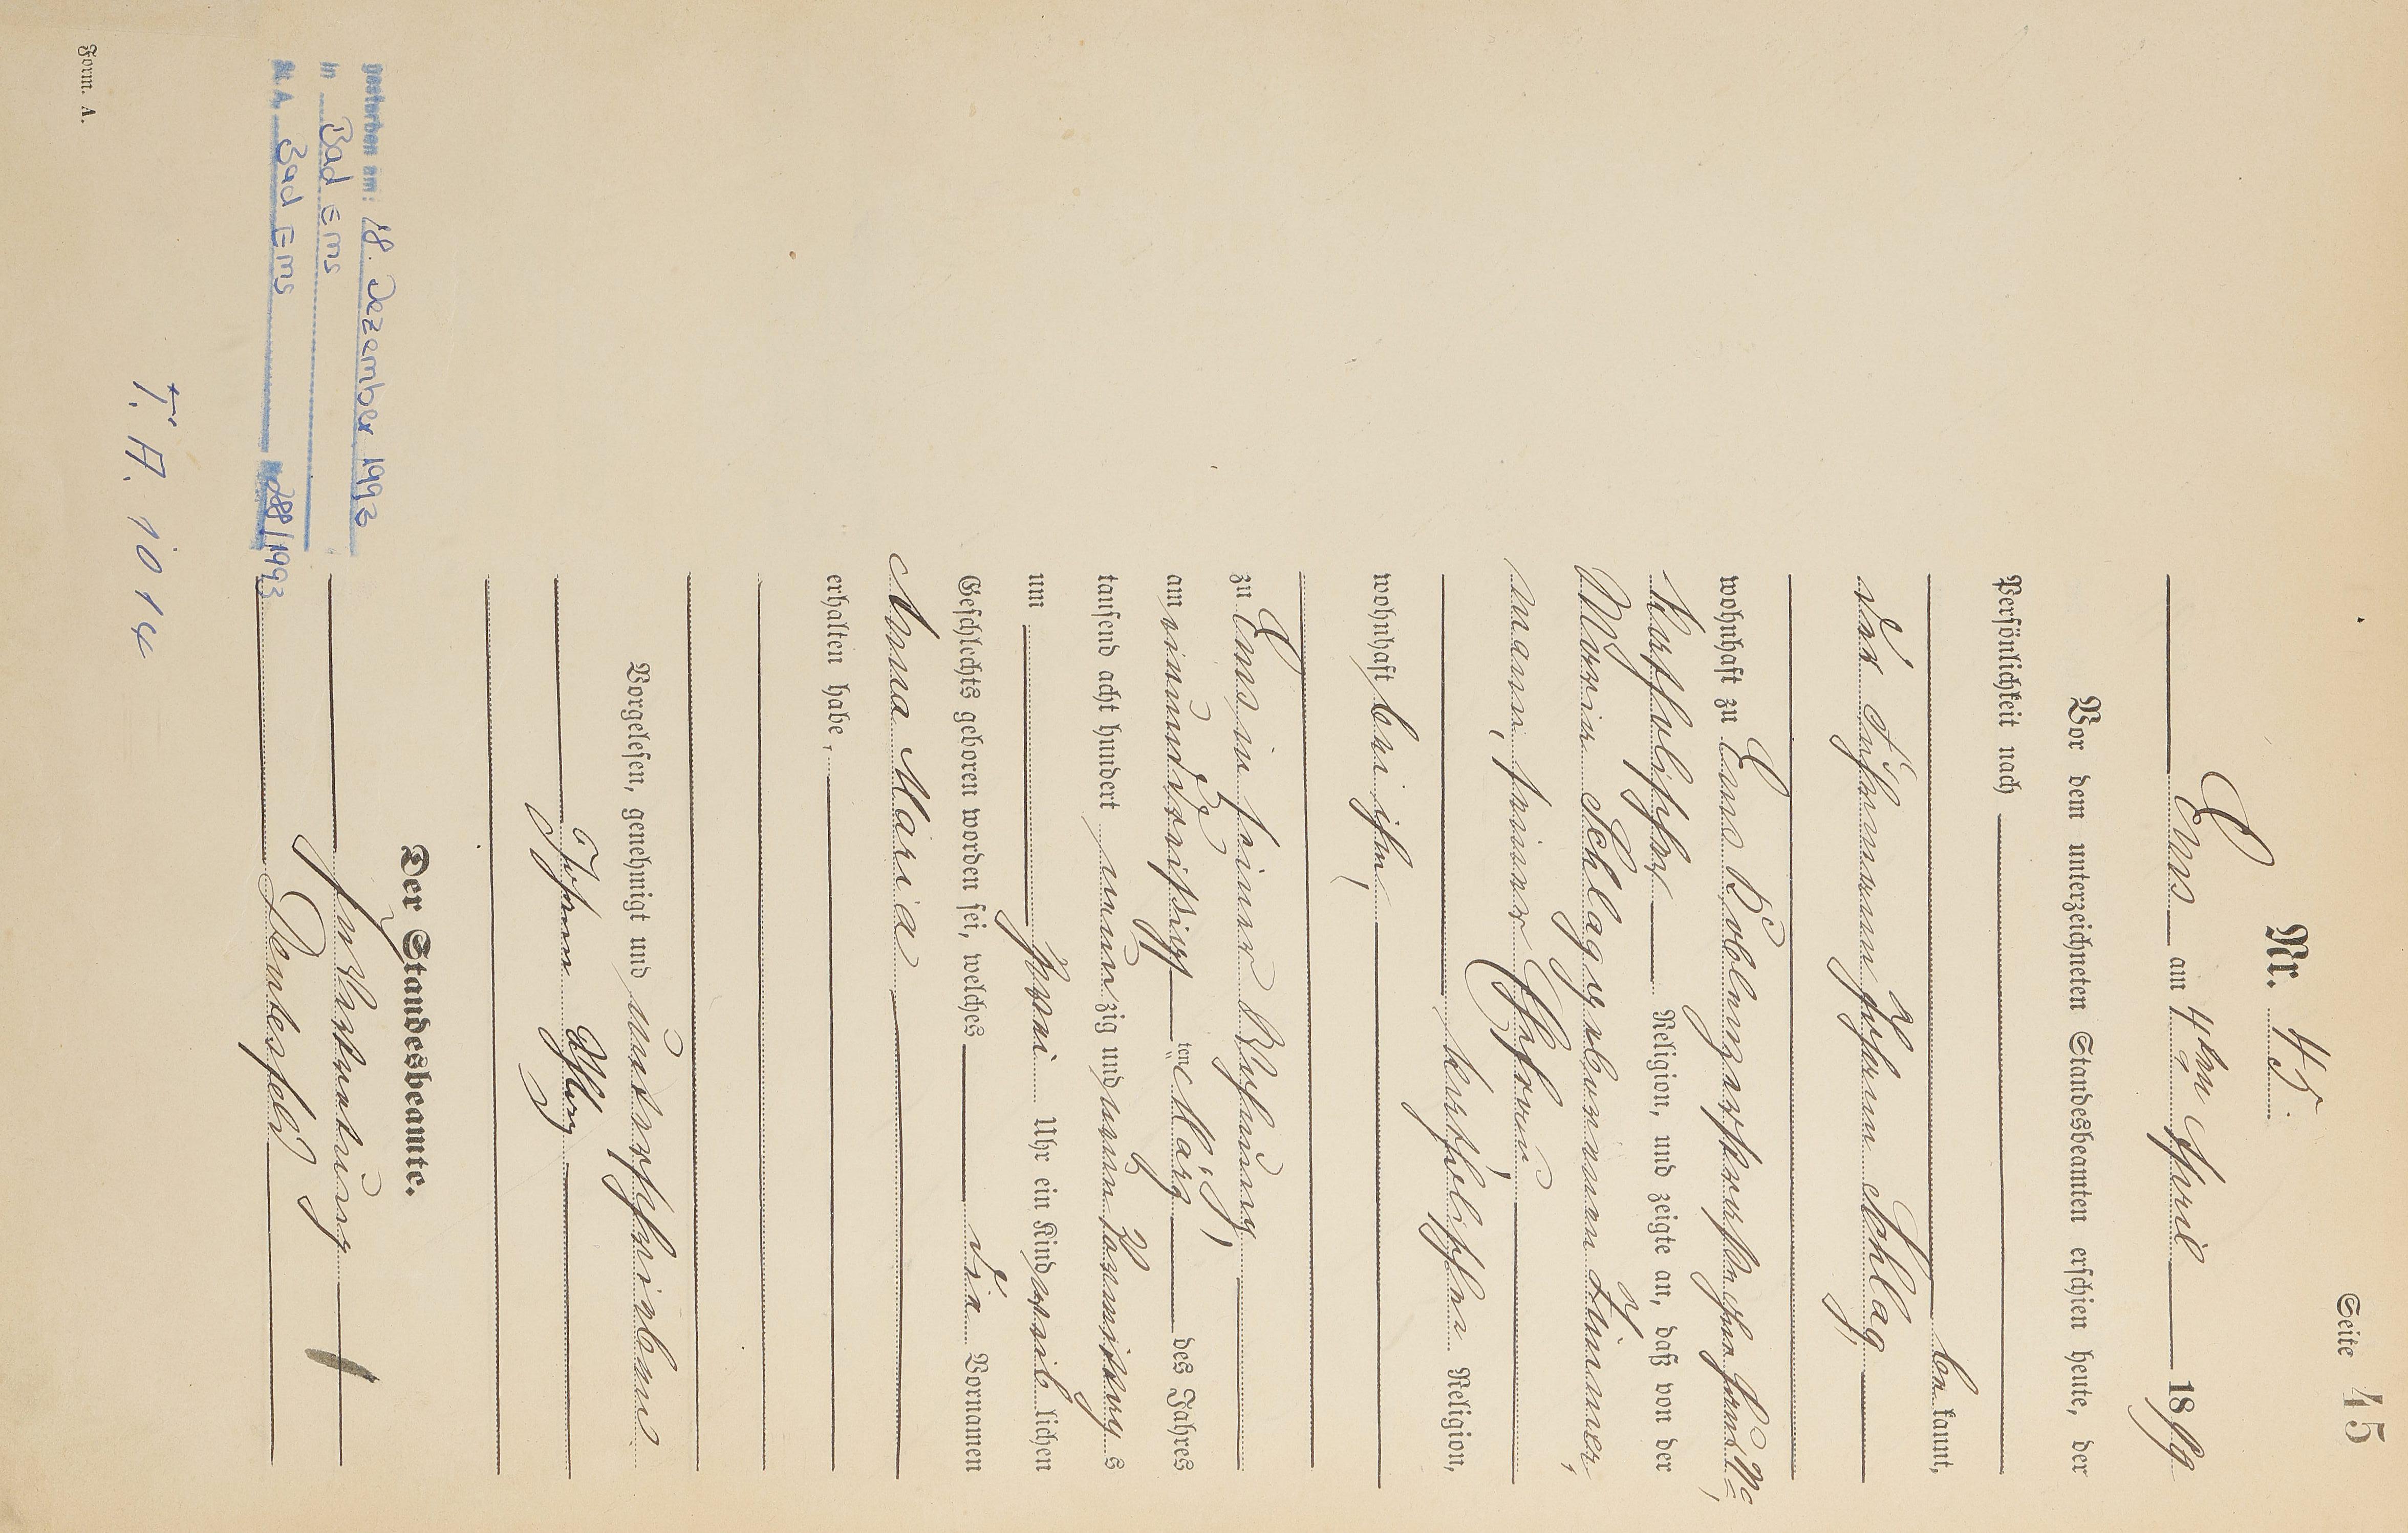 Seite 45
Nr. 45.
Ems am 4ten April 1899
Vor dem unterzeichneten Standesbeamten erschien heute, der
Persönlichkeit nach
bekannt,
der Fuhrmann Johann Schlag
wohnhaft zu Ems, Coblenzerstraße
katholischer Religion, und zeigte an, daß von der
Maria Schlag geborenen Zimmer,
mann, seiner Ehefrau
katholischer Religion,
wohnhaft bei ihm,
zu Ems in seiner Wohnung
am einunddreißigsten März des Jahres
tausend acht hundert neunzig und neun Vormittags
um zwei Uhr ein Kind weiblichen
Geschlechts geboren worden sei, welches die Vornamen
Anna Maria
erhalten habe,
Vorgelesen, genehmigt und unterschrieben
Johann Schlag
Der Standesbeamte.
In Vertretung
gestorben am: 18. Dezember 1993
in Bad Ems
St. A. Bad Ems /1993
T. A. 1014
Form. A.